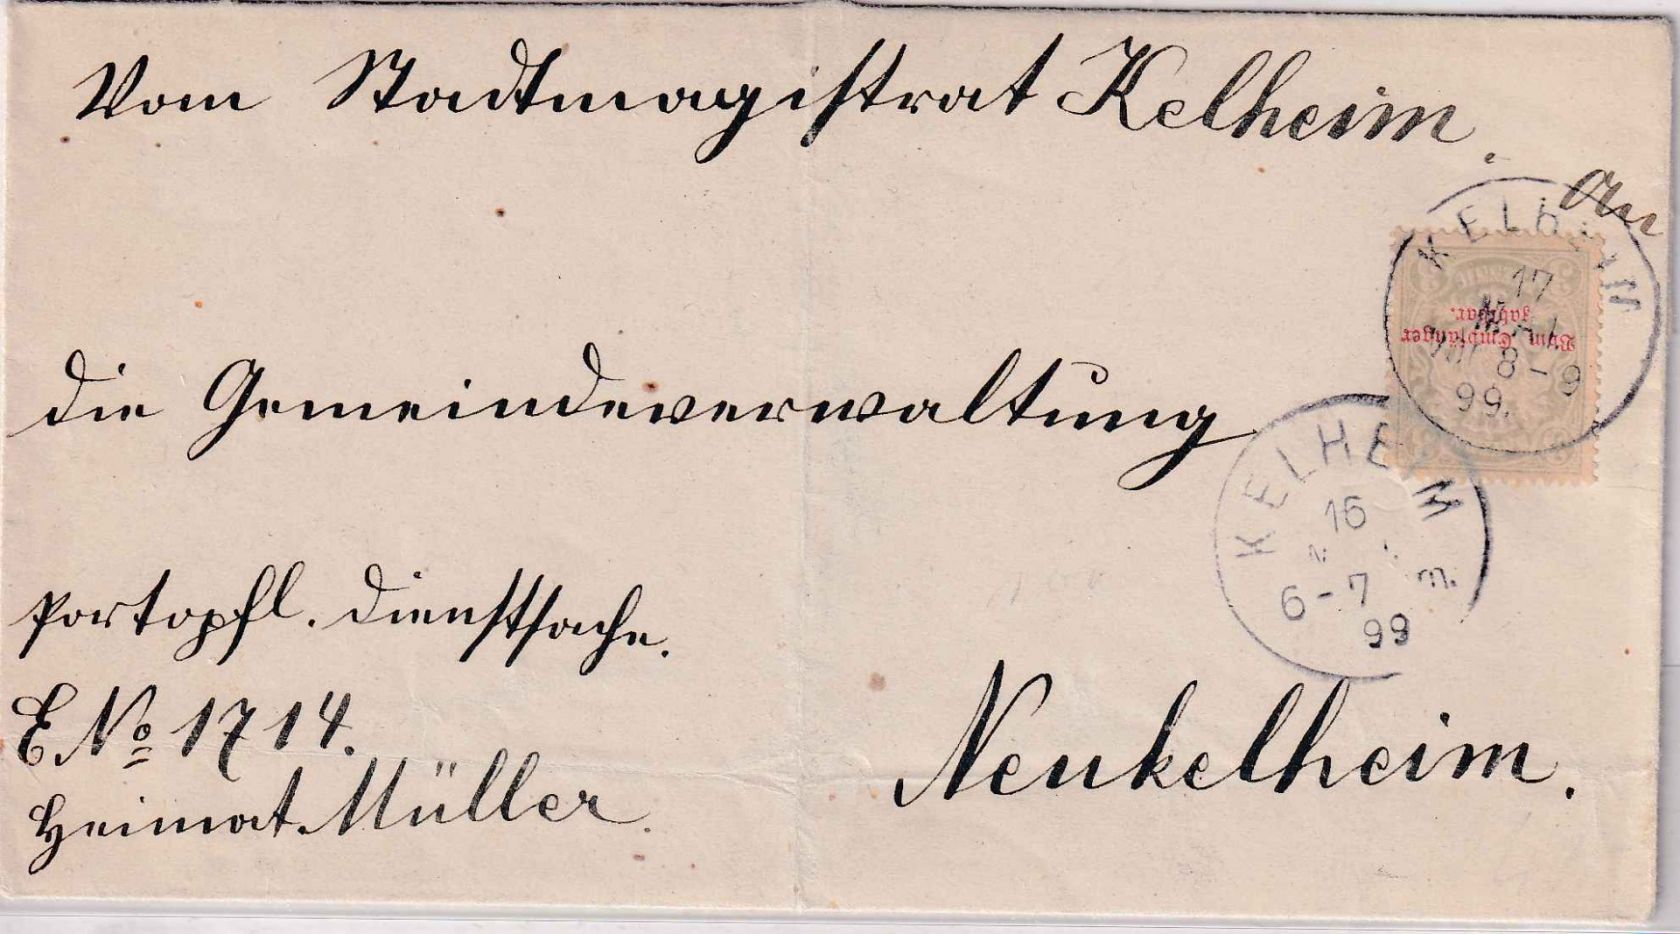 Vom Stadtmagistrat Kelheim.
An
die Gemeindeverwaltung
Neukelheim.
Portopfl. Dienstsache.
E No 1714.
Heimat Müller.
KELHEIM
17
MAI
8-9
99.
Vom Empfänger
zahlbar.
KELHEIM
16
6-7
99